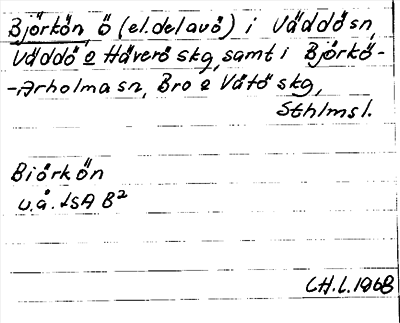 Björkön, ö (el. del av ö) i Väddö sn,
Väddö o Häverö skg, samt i Björkö-
-Arholma sn, Bro o Vätö skg,
Sthlms l.
Biörkön
u.å. LSA B2
C.H.L. 1968